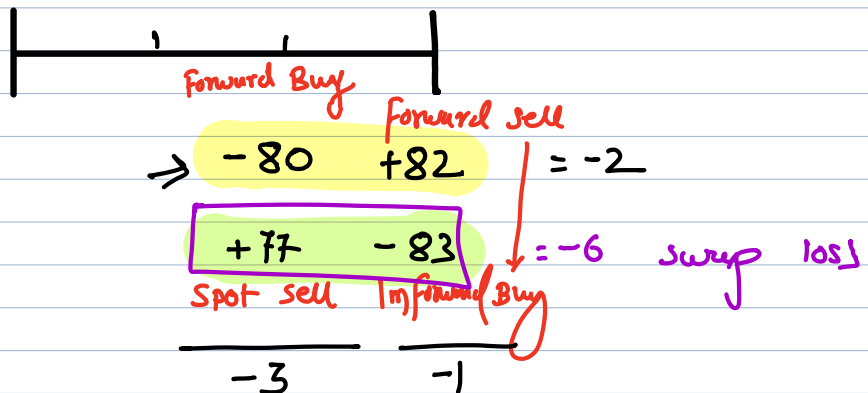 Forward Buy
Forward sell
⇒ -80 +82 = -2
+77 - 83 = -6 swap loss
Spot sell 1m forward Buy
-3 -1